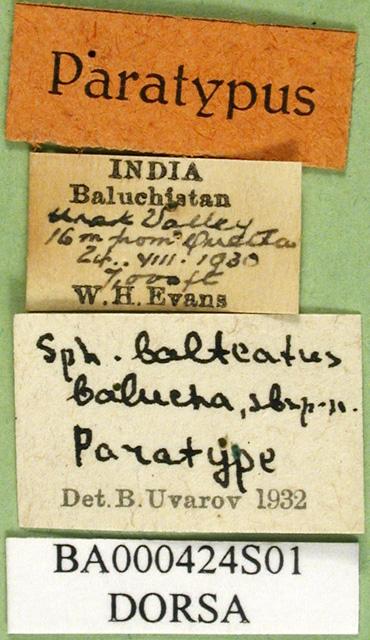 Paratypus
INDIA
Baluchistan
Urak Valley
16 m from Quetta
24. VIII. 1930
7,000 ft
W. H. Evans
Sph. balteatus
balucha, sbsp. n.
Paratype
Det. B. Uvarov 1932
BA000424S01
DORSA